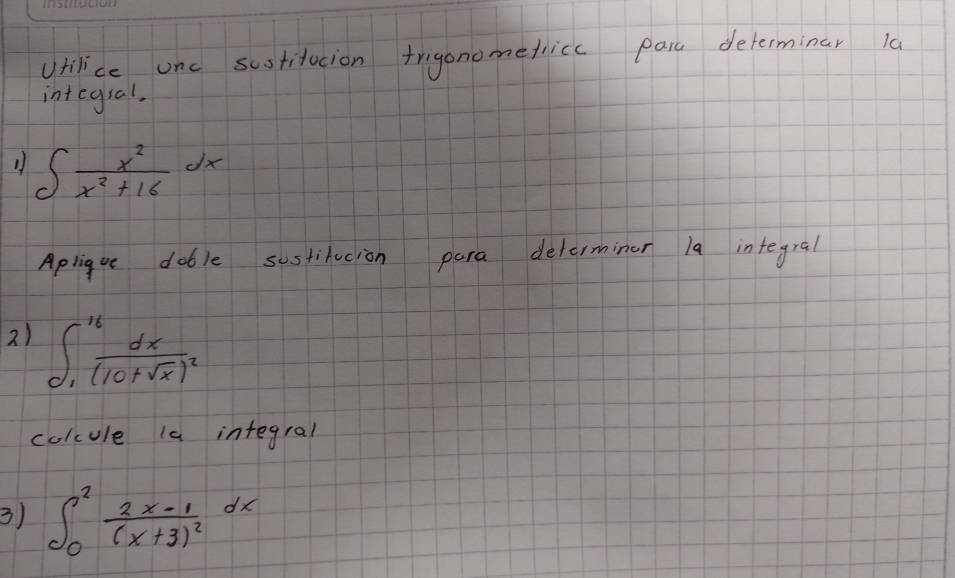 Institución
Utilice una sustitucion trigonometricc para determinar la
integral.
1) ∫ x² / (x² + 16) dx
Aplique doble sustitucion para determinar la integral
2) ∫₁¹⁶ dx / (10 + √x)²
calcule la integral
3) ∫₀² (2x - 1) / (x + 3)² dx